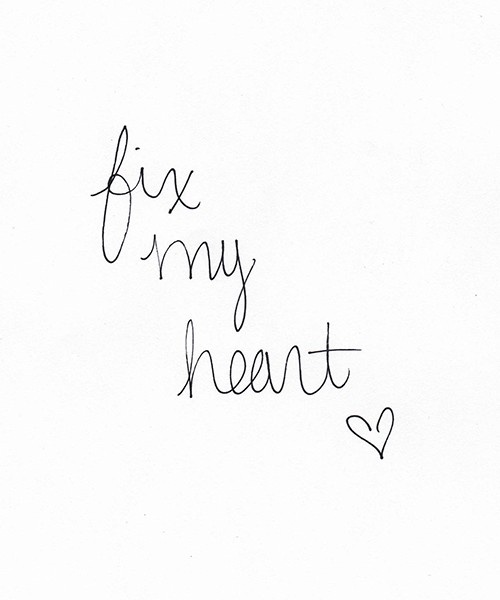 fix
my
heart